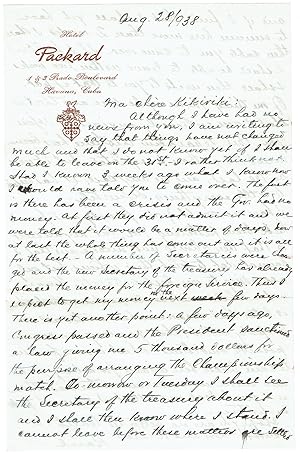 Aug. 28/938
Hotel
Packard
1 & 3 Prado Boulevard
Havana, Cuba
Ma chère Kikiriki:
Although I have had no
news from you, I am writing to
say that things have not changed
much and that I do not know yet if I shall
be able to leave on the 31st. I rather think not.
Had I known 2 weeks ago what I know now
I would have told you to come over. The fact
is there has been a crisis and the Gov. had no
money. At first they did not admit it and we
were told that it would be a matter of days, now
at last the whole thing has come out and it is all
for the best. A number of Secretaries were chan
ged and the new Secretary of the treasury has already
placed the money for the foreign Service. Thus I
expect to get my money next few days.
There is yet another point: a few days ago,
Congress passed and the President sanctioned
a law giving me 5 thousand dollars for
the purpose of arranging the Championship
match. To-morrow or Tuesday I shall see
the Secretary of the treasury about it
and I shall then know where I stand. I
cannot leave before these matters are settled